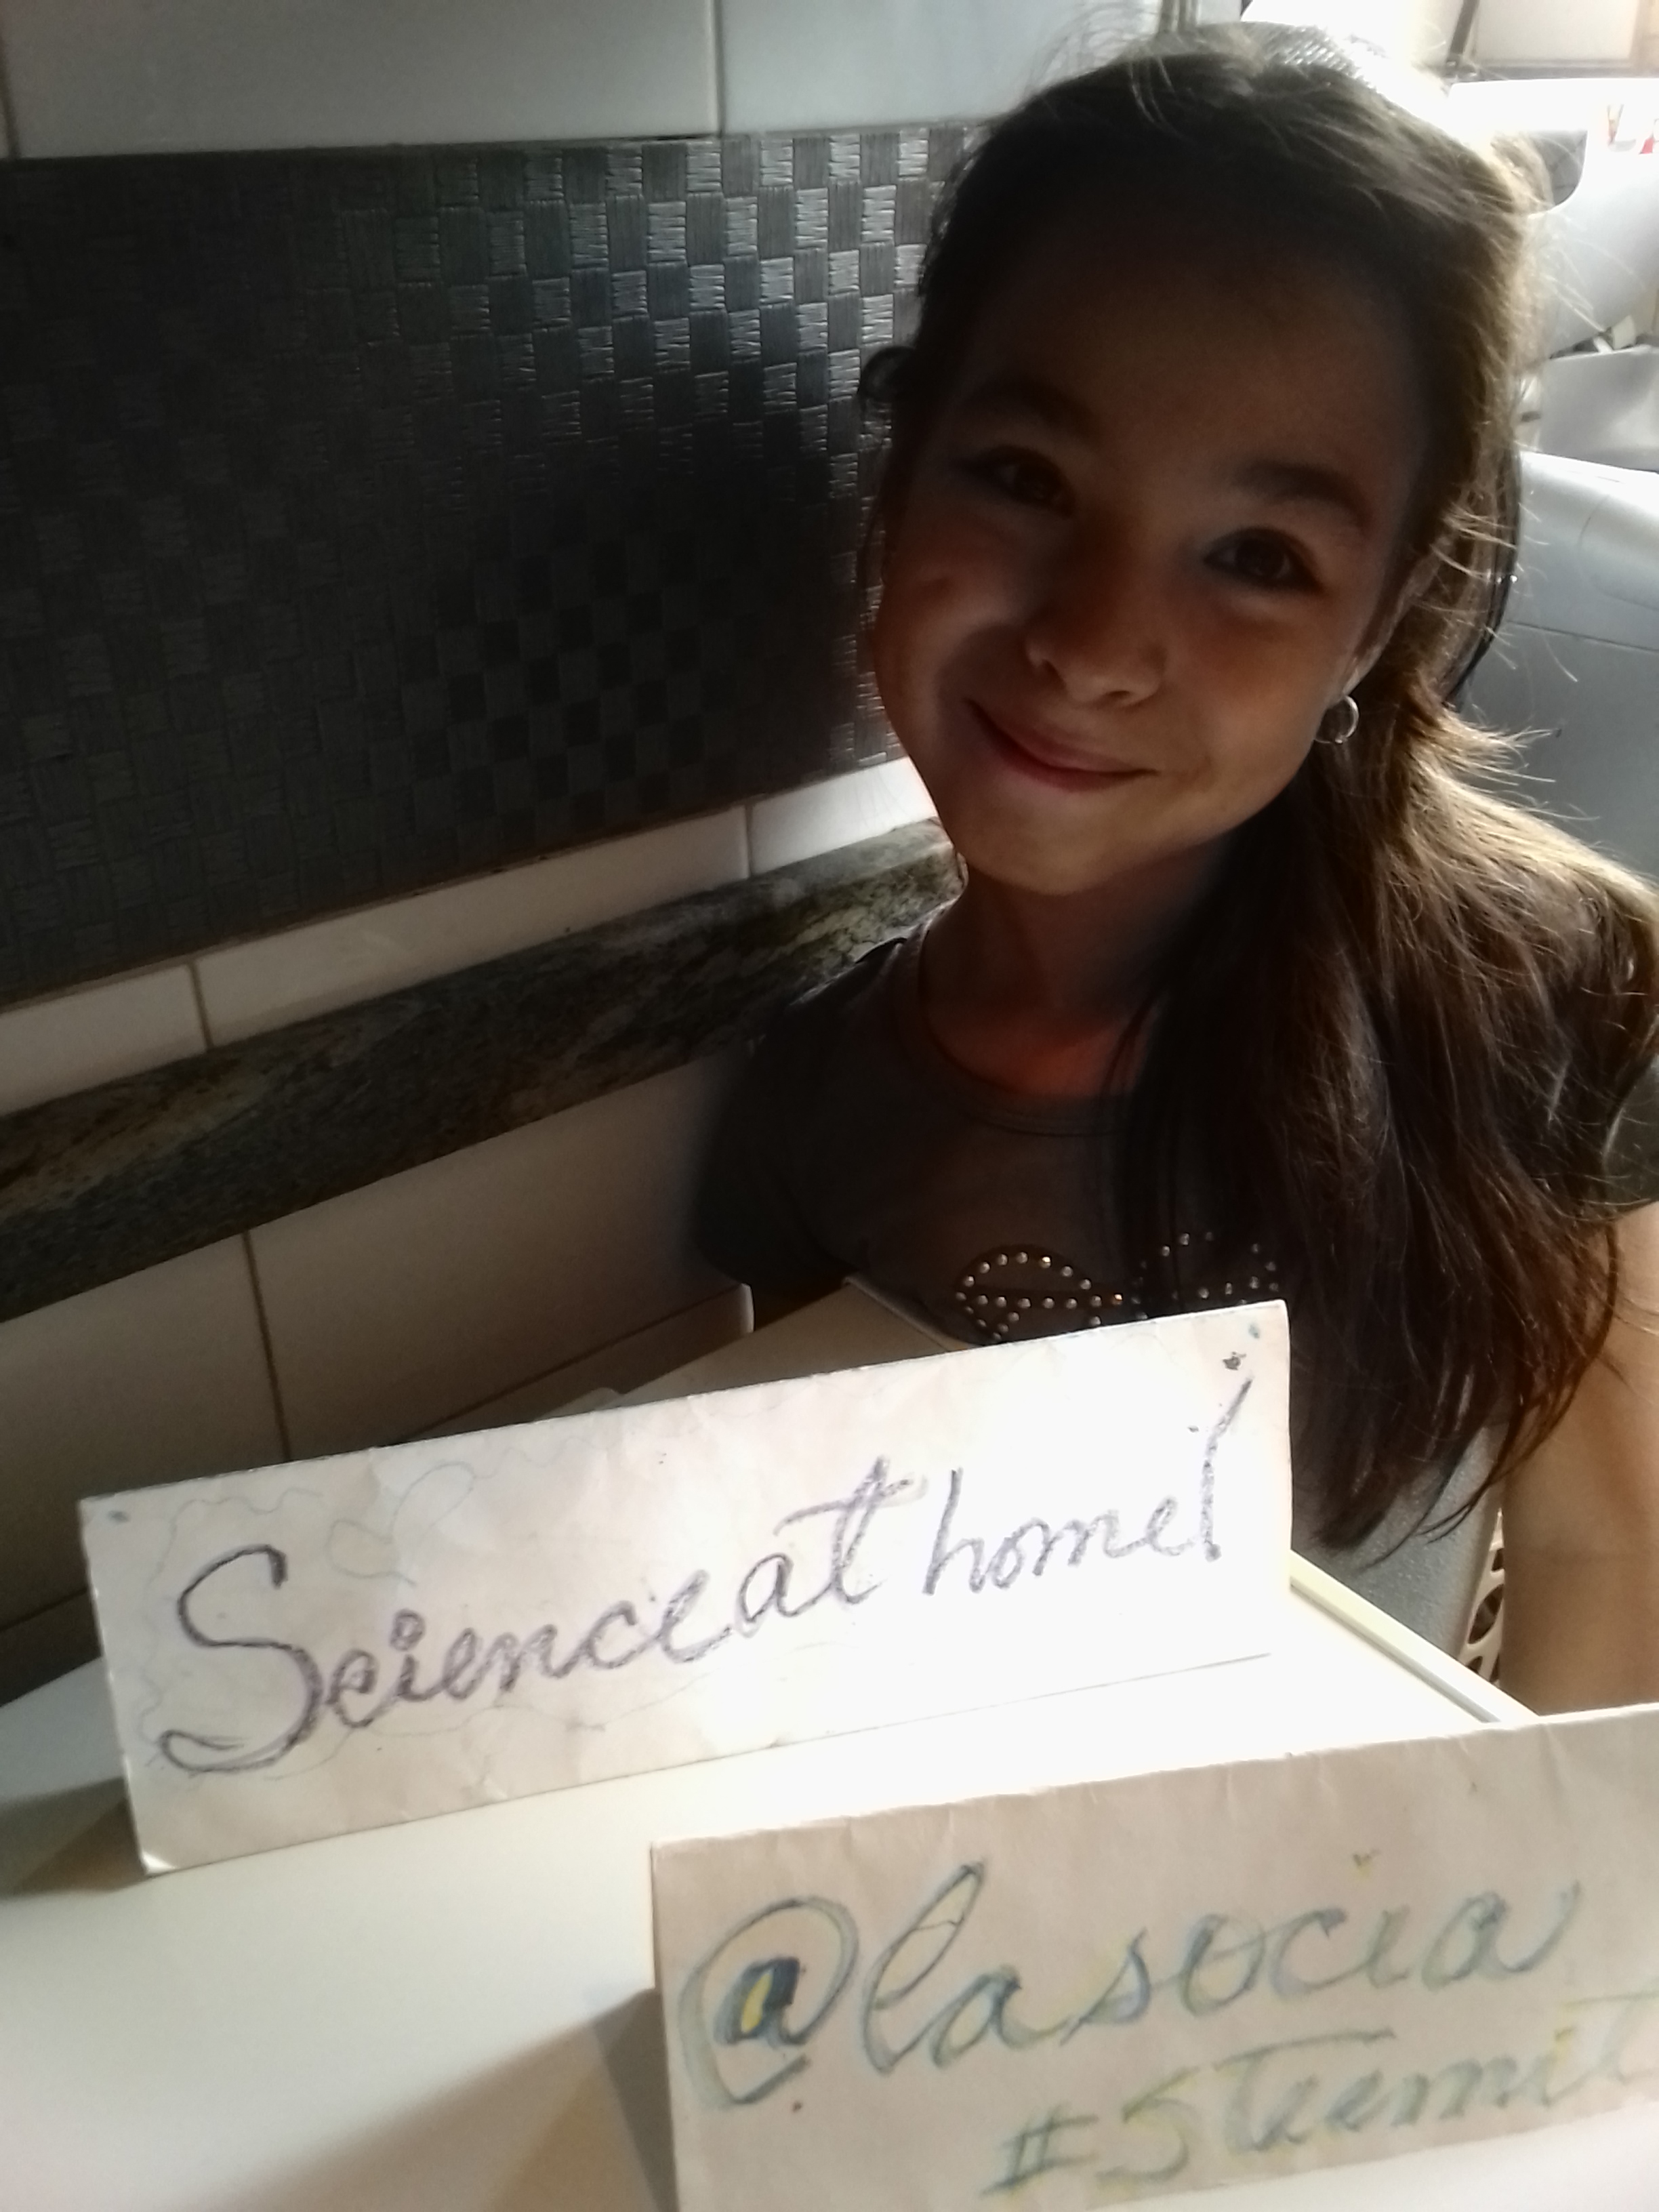 Science at home!
@lasocia
#Steemit